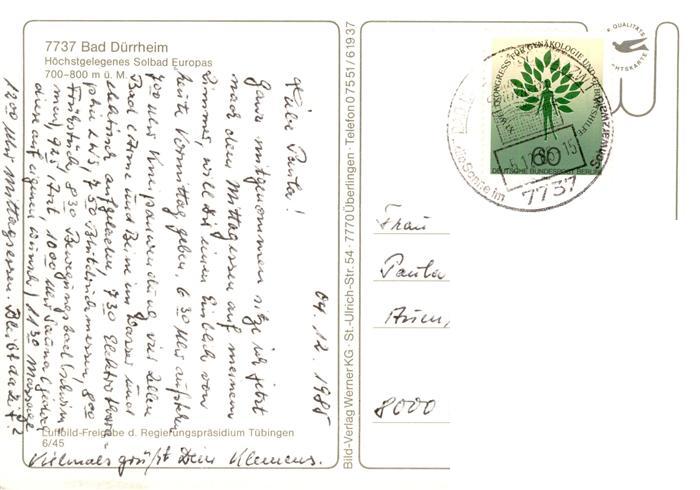 7737 Bad Dürrheim
Höchstgelegenes Solbad Europas
700–800 m ü. M.
04.12.1985
Liebe Paula!
Ganz mitgenommen sitze ich jetzt
nach dem Mittagessen auf meinem
Zimmer, will Dir einen Einblick vom
heute Vormittag geben. 6 30 Uhr aufstehn
7 00 Uhr Kneipanwendung vier Zellen
Bad (Arme und Beine im Wasser und
elektrisch aufgeladen, 7 30 Elektrothera-
phie LWS, 7 50 Blutdruckmessen, 8 00
Frühstück, 8 30 Bewegungsbad (schwim
men, 9 25 Arzt 10 00 Uhr Sauna (jedoch
auf eigenen Wunsch) 11 30 Massage
12 00 Uhr Mittagessen. Bleibt da Zeit?
Vielmals grüßt Dein Klemens.
Luftbild-Freigabe d. Regierungspräsidium Tübingen
6/45
Bild-Verlag Werner KG · St.-Ulrich-Str. 54 · 7770 Überlingen · Telefon 0 75 51/6 19 37
QUALITÄTS
XI. WELTKONGRESS FÜR GYNÄKOLOGIE UND GEBURTSHILFE
60
DEUTSCHE BUNDESPOST BERLIN
5.12.85-15
7737
Schwarzwald
Frau
Paula
8000